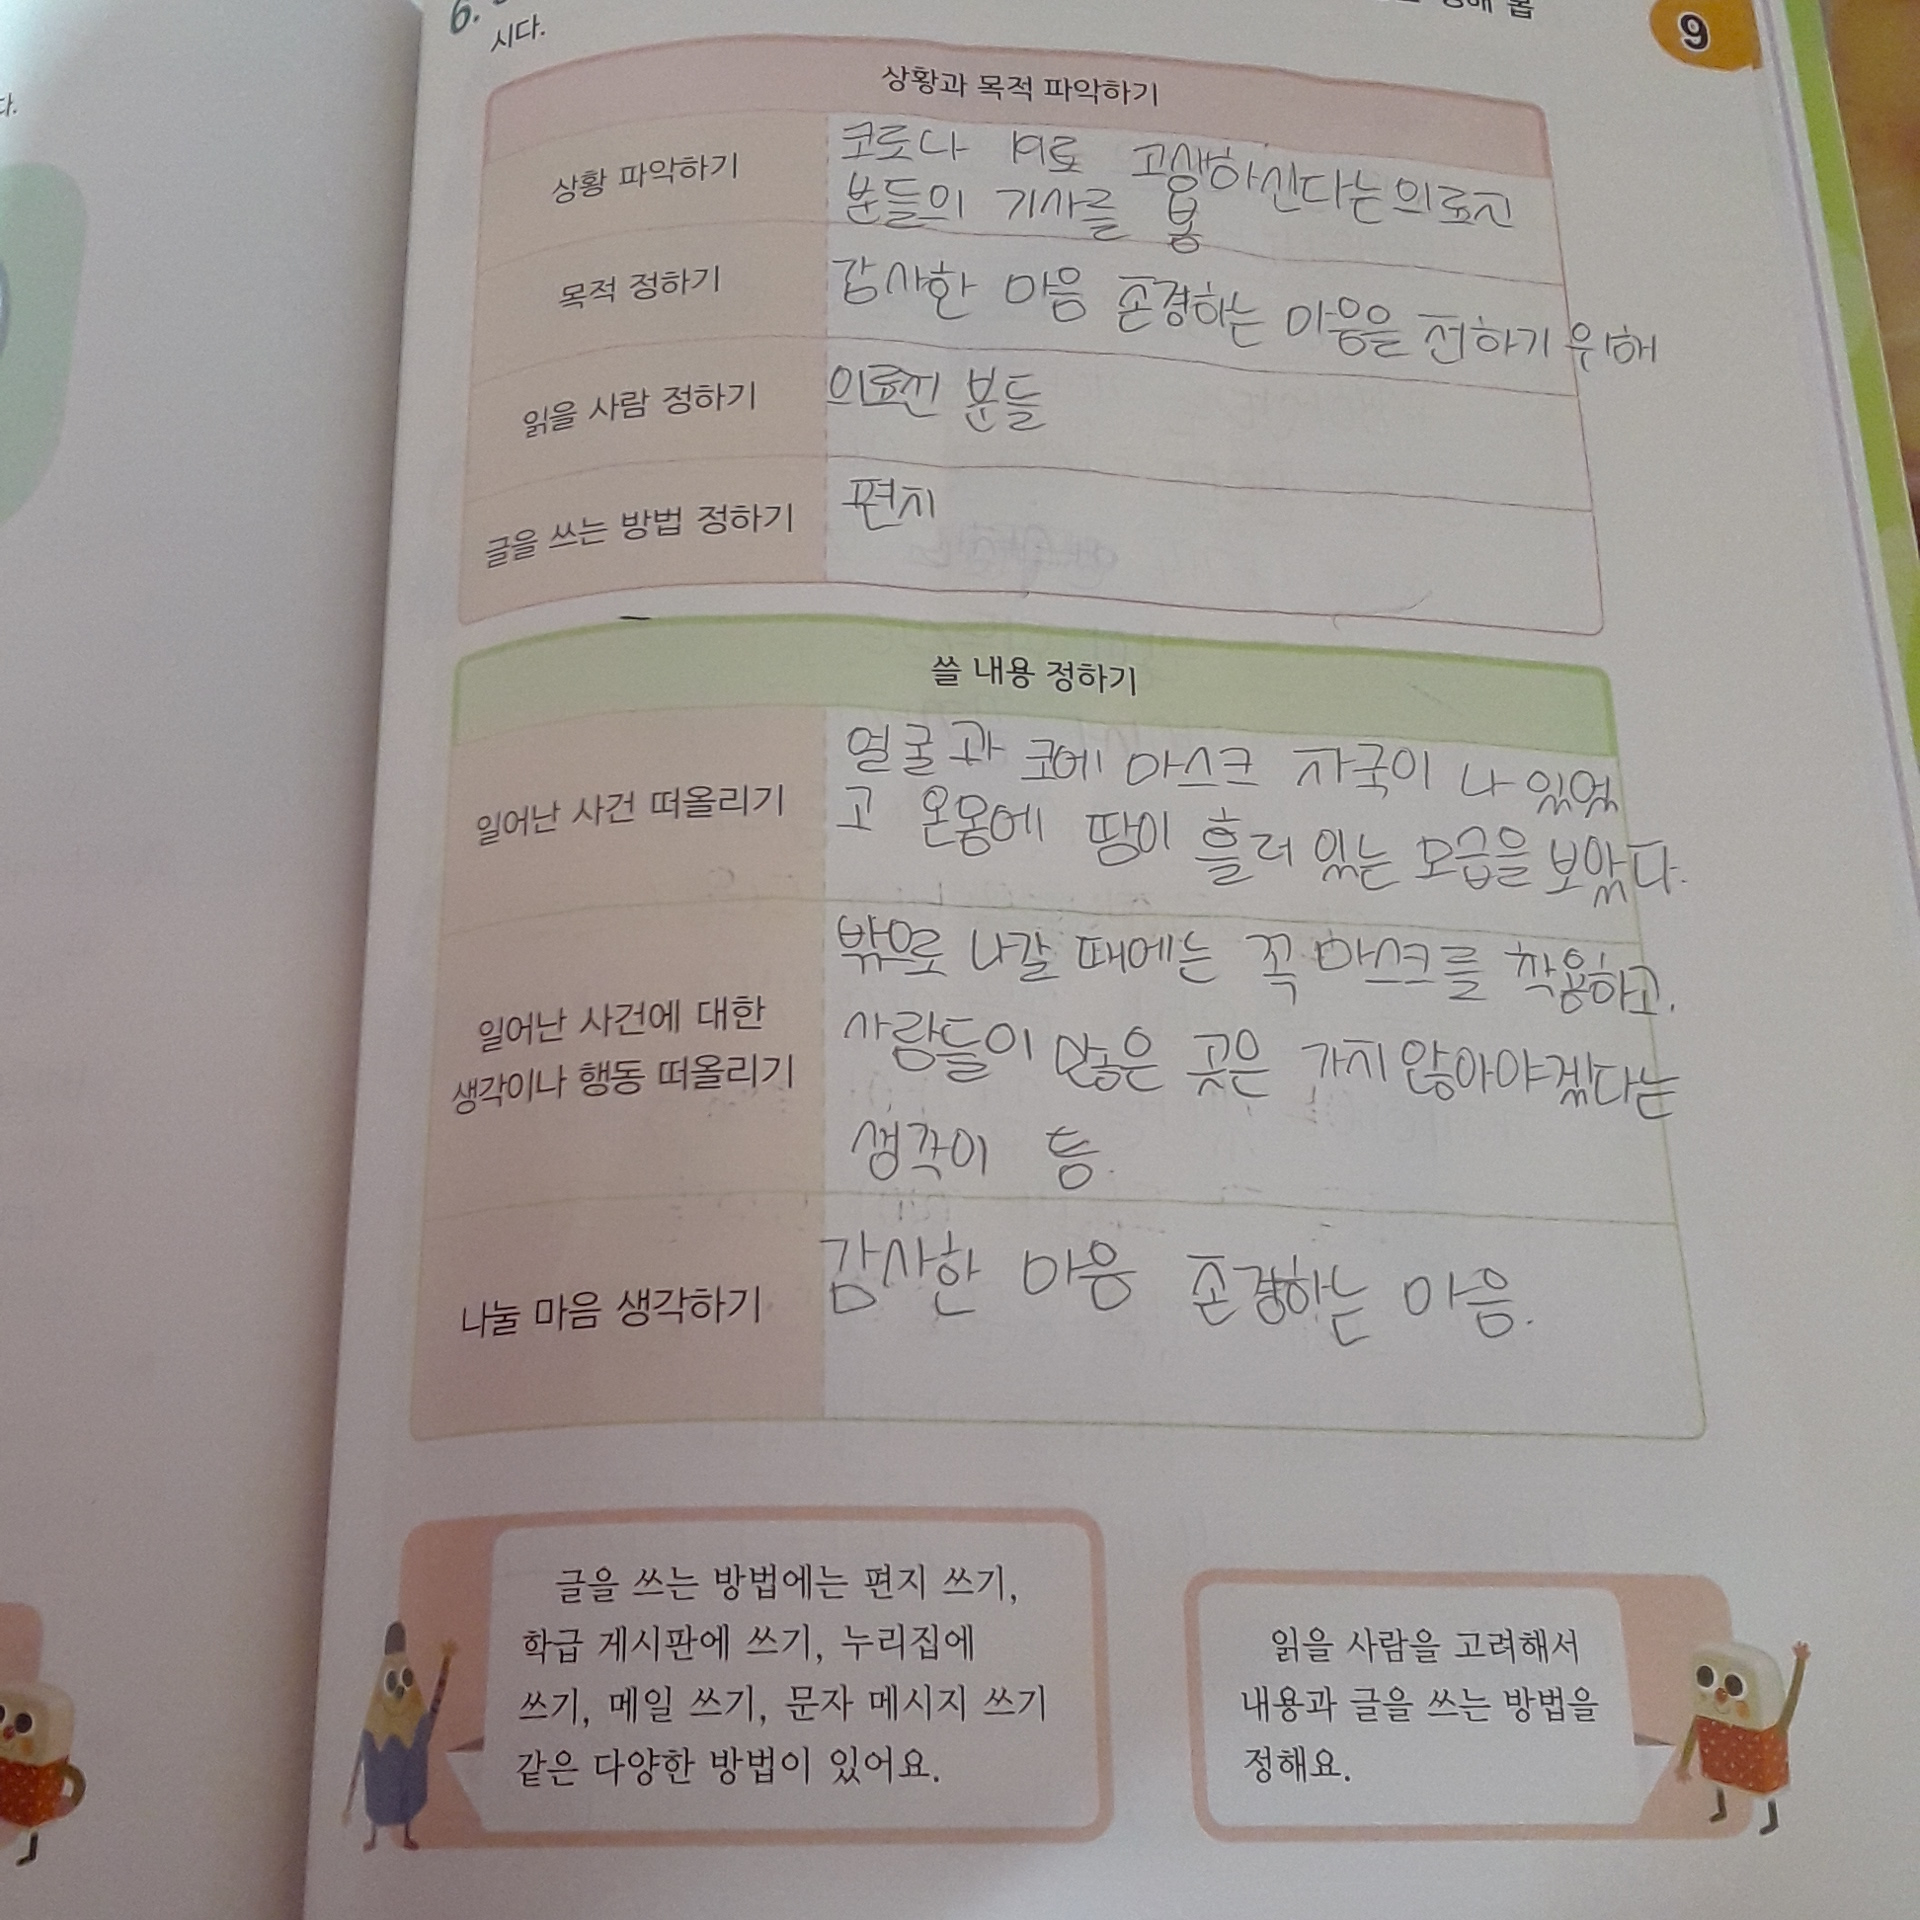 6.
시다.
9
다.
상황과 목적 파악하기
상황 파악하기
코로나 19로 고생하신다는 의료진
분들의 기사를 봄
목적 정하기
감사한 마음 존경하는 마음을 전하기 위해
읽을 사람 정하기
의료진 분들
글을 쓰는 방법 정하기
편지
쓸 내용 정하기
일어난 사건 떠올리기
얼굴과 코에 마스크 자국이 나 있었
고 온몸에 땀이 흘러 있는 모습을 보았다.
일어난 사건에 대한
생각이나 행동 떠올리기
밖으로 나갈 때에는 꼭 마스크를 착용하고,
사람들이 많은 곳은 가지 않아야겠다는
생각이 듬.
나눌 마음 생각하기
감사한 마음 존경하는 마음.
글을 쓰는 방법에는 편지 쓰기,
학급 게시판에 쓰기, 누리집에
쓰기, 메일 쓰기, 문자 메시지 쓰기
같은 다양한 방법이 있어요.
읽을 사람을 고려해서
내용과 글을 쓰는 방법을
정해요.